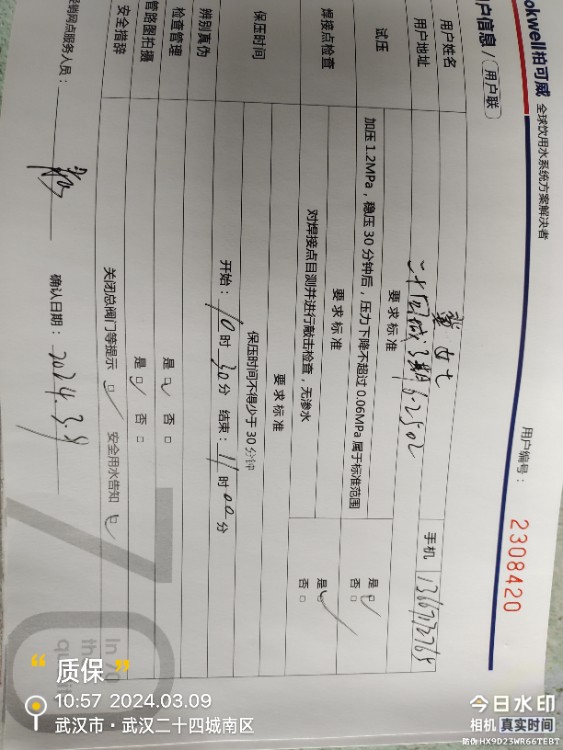 ookwell柏可威 全球饮用水系统方案解决者
户信息 (用户联) 用户编号： 2308420
用户姓名 女士
用户地址 二十四城3期6-2502 手机
试压 要求标准
加压1.2MPa，稳压30分钟后，压力下降不超过0.06MPa属于标准范围 是 否
焊接点检查 要求标准
对焊接点目测并进行敲击检查，无渗水 是 否
保压时间 要求标准
保压时间不得少于30分钟
开始：10时30分 结束：11时00分
辨别真伪 是 否
检查管理 是 否
管路图拍摄
安全措辞 关闭总阀门等提示 安全用水告知
促销网点服务人员： 确认日期：2024.3.9
70
In 70
th
qu
“质保”
10:57 2024.03.09
武汉市·武汉二十四城南区
今日水印
相机 真实时间
防伪 HX9D23WR66TEBT